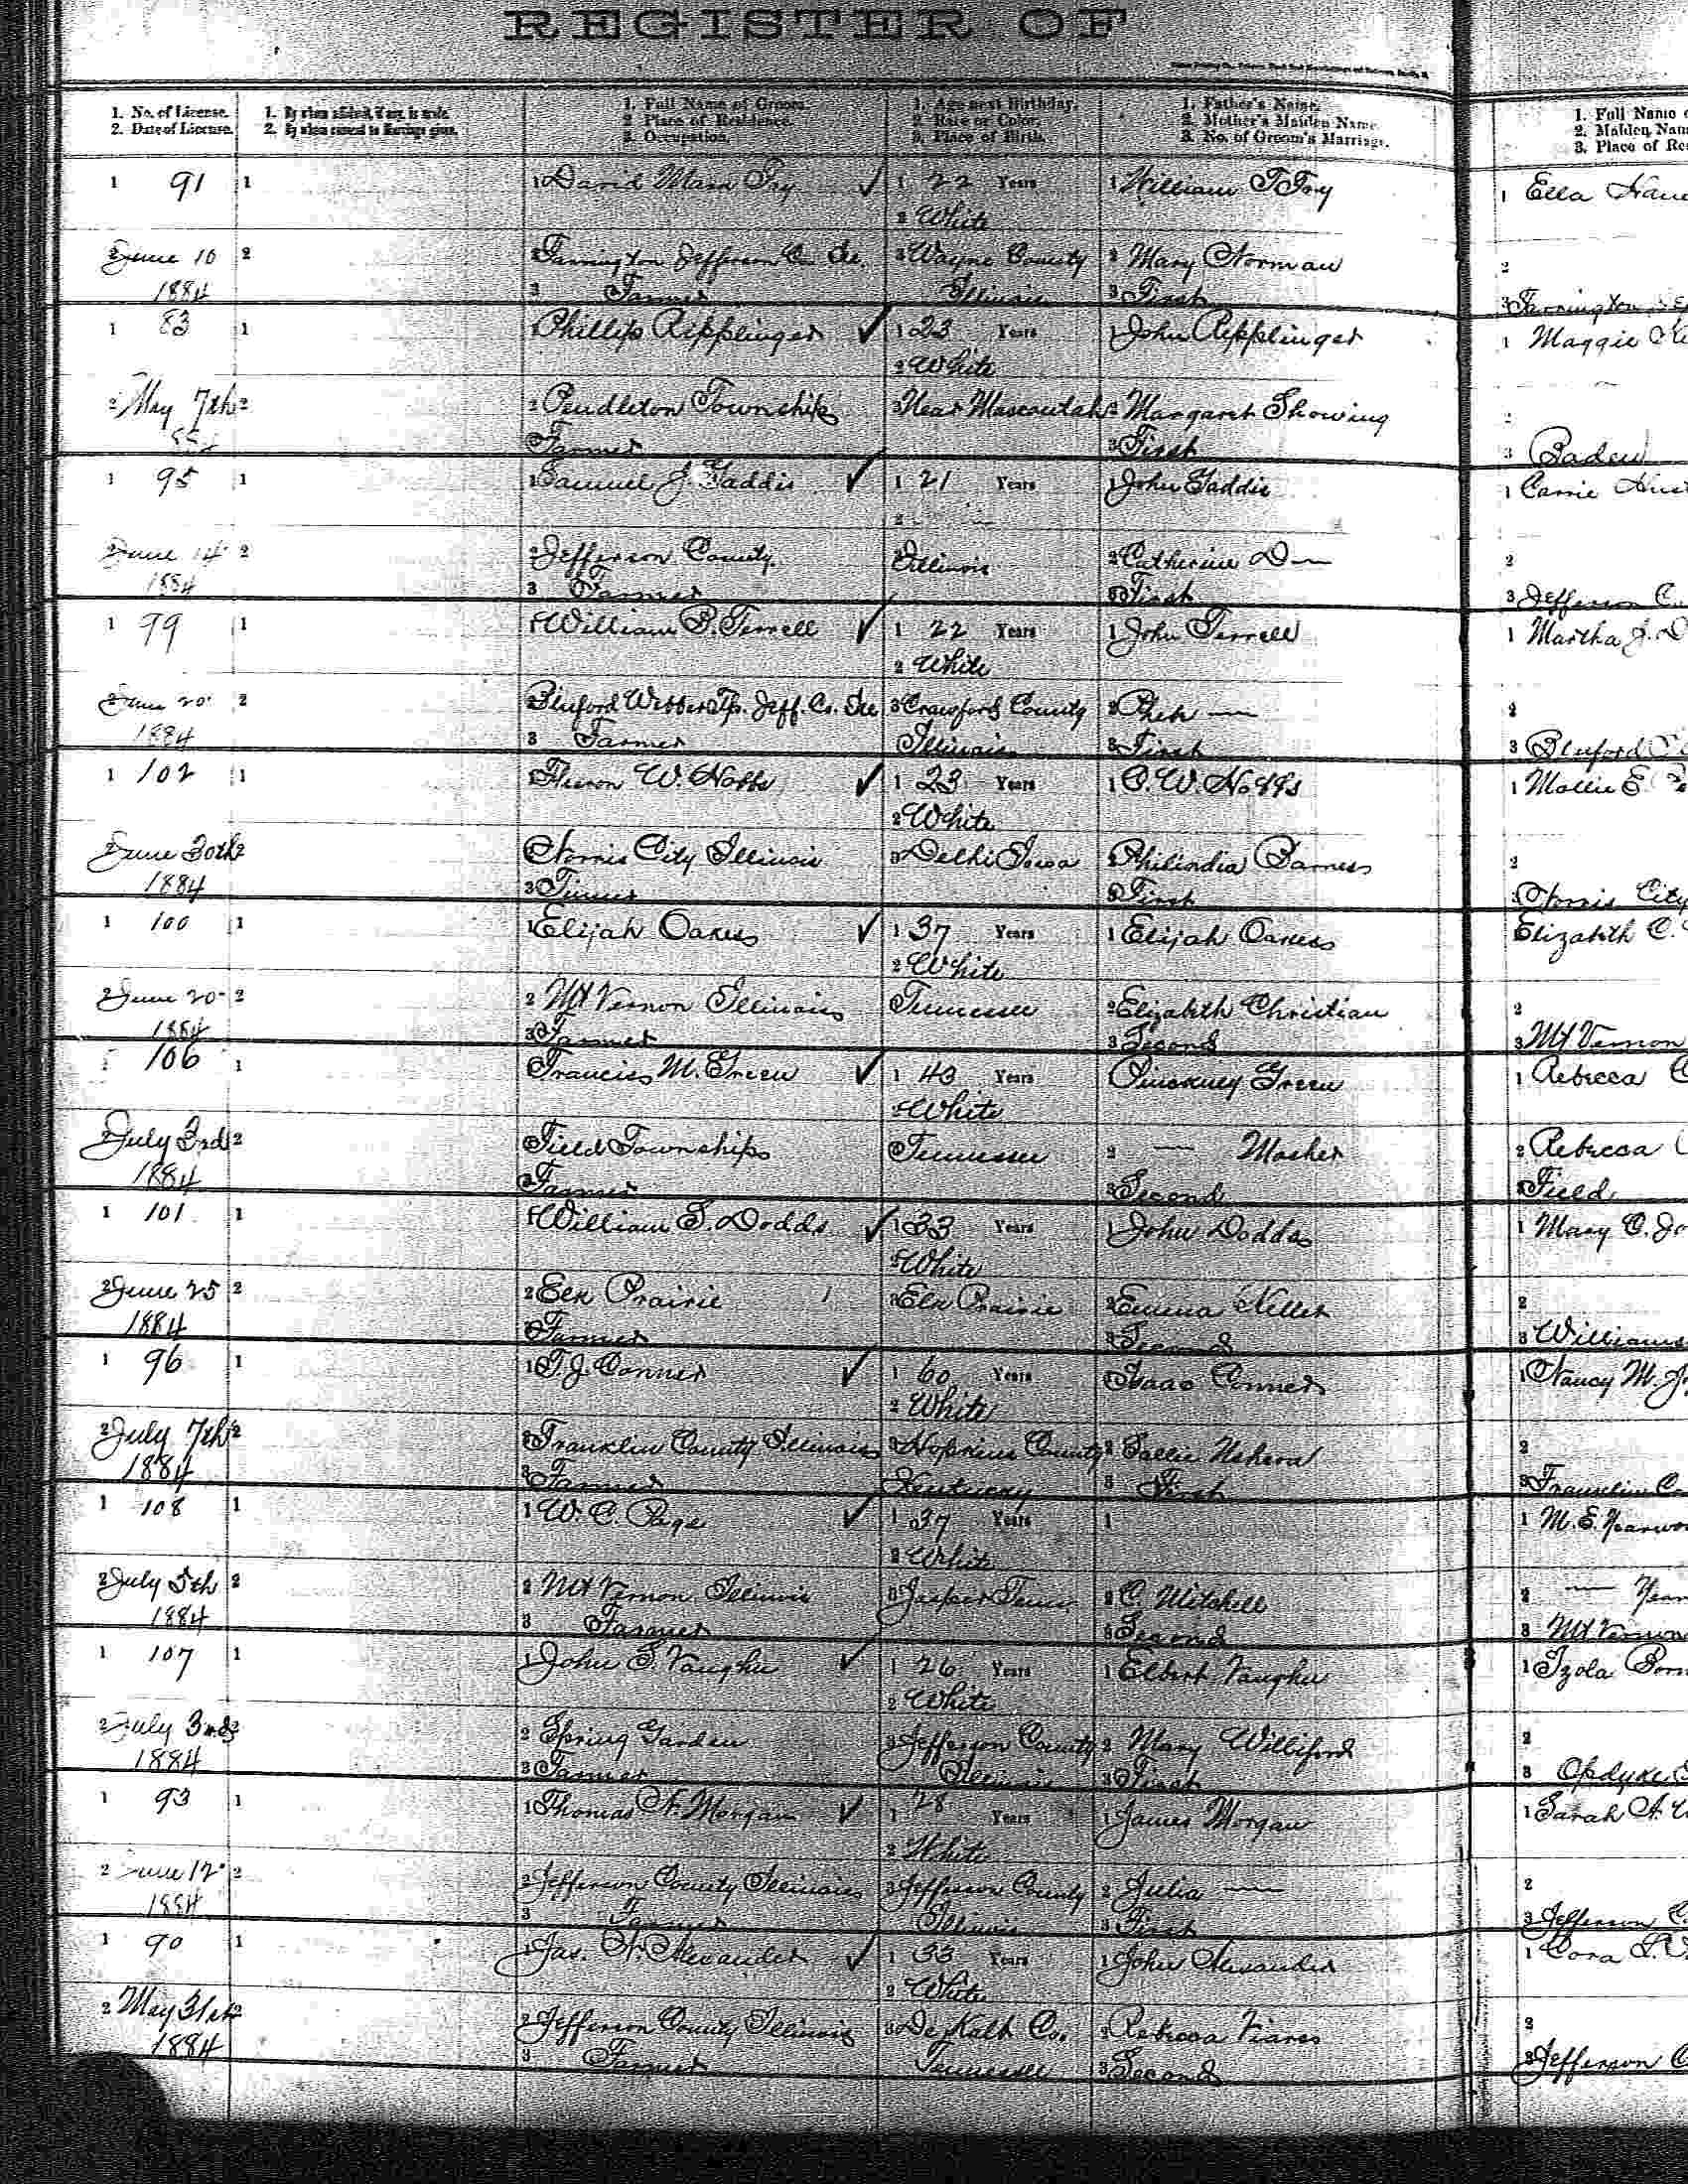 REGISTER OF
1. No. of License.
2. Date of License.
1. By whom affidavit, if any, is made.
2. By whom consent to Marriage given.
1. Full Name of Groom.
2. Place of Residence.
3. Occupation.
1. Age next Birthday.
2. Race or Color.
3. Place of Birth.
1. Father's Name.
2. Mother's Maiden Name.
3. No. of Groom's Marriage.
1. Full Name
2. Maiden Nam
3. Place of Re
1 91 1 1 David Fry 1 22 Years 1 William T Fry 1 Ella
2 White
2 June 10 2 2 Farrington Jefferson Co. Ill. 3 Wayne County 2 Mary Norman 2
1884 3 Farmer Illinois 3 First 3 Farrington
1 83 1 1 Phillip Ripplinger 1 23 Years 1 John Ripplinger 1 Maggie
2 White
2 May 7th 2 2 Pendleton Township 3 Near Mascoutah 2 Margaret Showing 2
3 Farmer 3 First 3 Baden
1 95 1 1 Samuel J. Gaddis 1 21 Years 1 John Gaddis 1 Carrie
2
2 June 14 2 2 Jefferson County. Illinois 2 Catherine D— 2
1884 3 Farmer 3 First 3 Jefferson C.
1 99 1 1 William B. Terrell 1 22 Years 1 John Terrell 1 Martha J. D
2 White
2 June 20 2 2 Bluford Webber Tp. Jeff. Co. Ill 3 Crawford County 2 — 2
1884 3 Farmer Illinois 3 First 3 Bluford
1 102 1 1 Theron W. Hobbs 1 23 Years 1 C. W. Hobbs 1 Mollie E
2 White
2 June 30th 2 Norris City Illinois 3 Delhi Iowa 2 Philindia Barness 2
1884 3 Tinner 3 First 3 Norris City
1 100 1 1 Elijah Oakess 1 37 Years 1 Elijah Oakess Elizabeth C.
2 White
2 June 20 2 2 Mt Vernon Illinois 3 Tennessee 2 Elizabeth Christian 2
1884 3 Farmer 3 Second 3 Mt Vernon
1 106 1 1 Franciss M. Green 1 43 Years Pinckney Green 1 Rebecca
2 White
2 July 3rd 2 2 Field Township 3 Tennessee 2 — Mosher 2 Rebecca
1884 3 Farmer 3 Second 3 Field
1 101 1 1 William S. Dodds 1 33 Years 1 John Dodds 1 Mary C. Jo
2 White
2 June 25 2 2 Elk Prairie 3 Elk Prairie 2 Emma 2
1884 3 Farmer 3 Second 3 Williams
1 96 1 1 T. J. Conner 1 60 Years 1 Isaac Conner 1 Nancy M. Jo
2 White
2 July 7th 2 2 Franklin County Illinois 3 Hopkins County 2 Sallie 2
1884 3 Farmer Kentucky 3 First 3 Franklin C.
1 108 1 1 W. C. Page 1 37 Years 1 1 M. E. Yearwo
2 White
2 July 5th 2 2 Mt Vernon Illinois 3 Jasper Tenn. 2 C. Mitchell 2 — Year
1884 3 Farmer 3 Second 3 Mt Vernon
1 107 1 1 John S. Vaughn 1 26 Years 1 Elbert Vaughn 1 Izola
2 White
2 July 3rd 2 2 Spring Garden 3 Jefferson County 2 Mary Williford 2
1884 3 Farmer Illinois 3 First 3 Opdyke
1 93 1 1 Thomas N. Morgan 1 28 Years 1 James Morgan 1 Sarah A.
2 White
2 June 12 2 2 Jefferson County Illinois 3 Jefferson County 2 Julia — 2
1884 3 Farmer Illinois 3 First 3 Jefferson C.
1 90 1 1 Jas. N. Alexander 1 33 Years 1 John Alexander 1 Cora
2 White
2 May 31st 2 2 Jefferson County Illinois 3 De Kalb Co. 2 Rebecca 2
1884 3 Farmer Tennessee 3 Second 3 Jefferson C